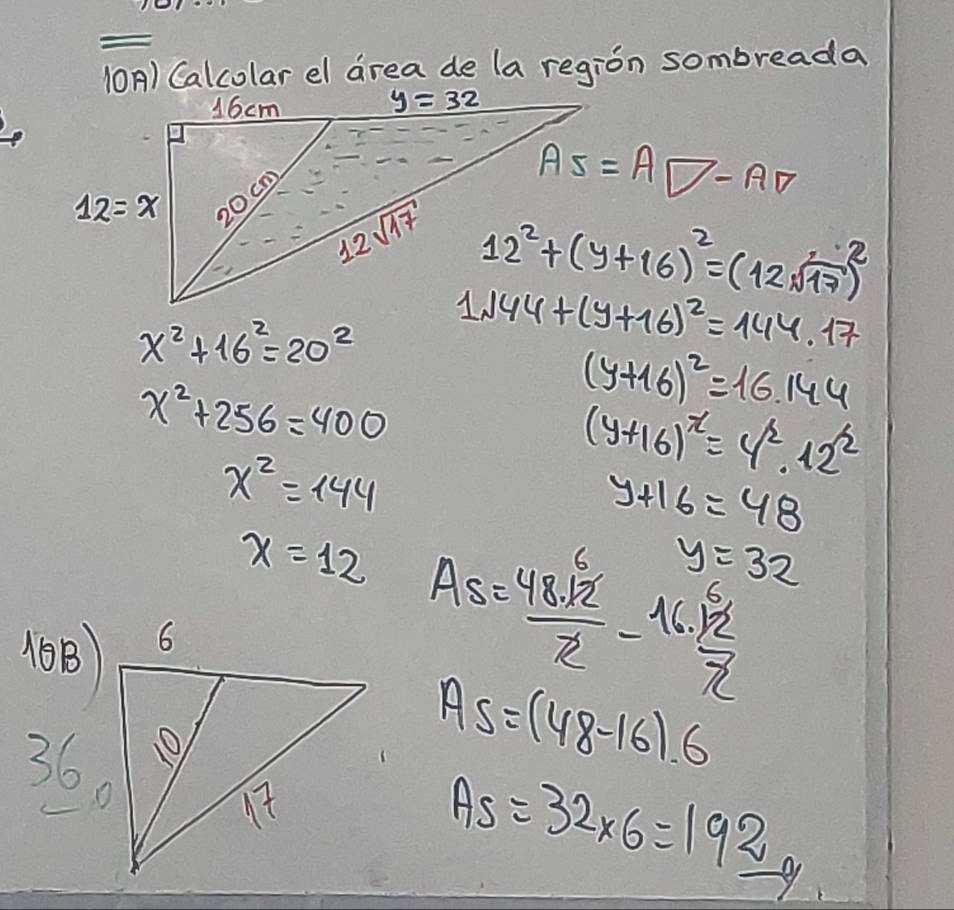 10A) Calcolar el área de la región sombreada
16cm
y = 32
12 = x
20cm
12√17
As = A - A
12² + (y+16)² = (12√17)²
144 + (y+16)² = 144.17
(y+16)² = 16.144
(y+16)² = 4².12²
y+16 = 48
y = 32
x² + 16² = 20²
x² + 256 = 400
x² = 144
x = 12
As = 48.12/2 - 16.12/2
6 6
As = (48-16).6
As = 32 × 6 = 192
10B)
6
10
17
36